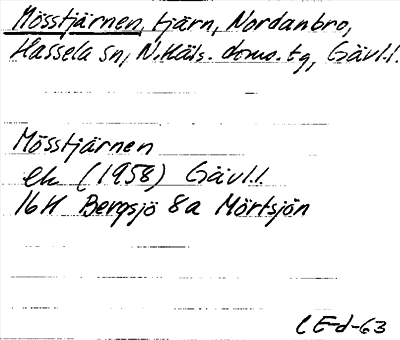 Mösstjärnen, tjärn, Nordanbro,
Hassela sn, N. Häls. doms. tg, Gävl.l.
Mösstjärnen
ek (1958) Gävl.l.
16H Bergsjö 8a Mörtsjön
CE-d-63